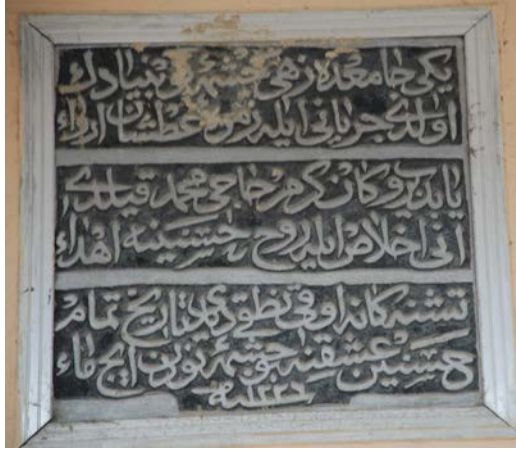 یکی جامعده زهی چشمه‌ئ بنیادك
اولدی جریانی ایله زمرهٔ عطشان ارواء
یابدیروب کان کرم حاجی محمد قیلدی
انی اخلاص ایله روح حسنینه اهداء
تشنه‌کانه اوقی نطقی دیدی تاریخ تمام
حسنین عشقنه خوش چشمهٔ نودن ایچ ماء
سنه